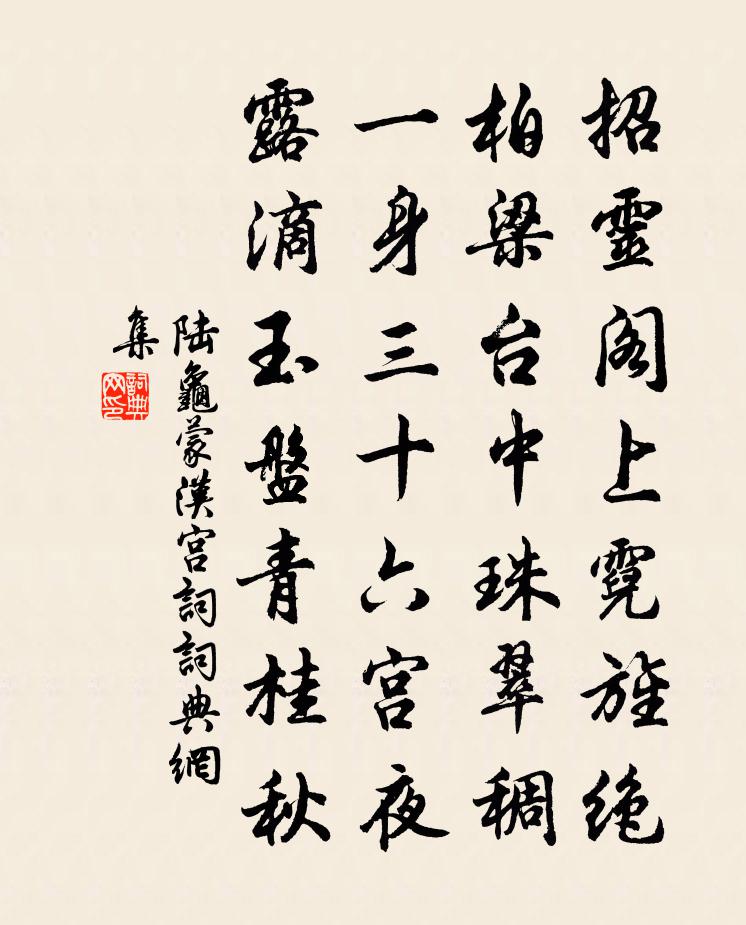 招靈阁上霓旌绝
柏梁台中珠翠稠
一身三十六宫夜
露滴玉盤青桂秋
陆龜蒙漢宫詞詞典網
集
詞典
网印